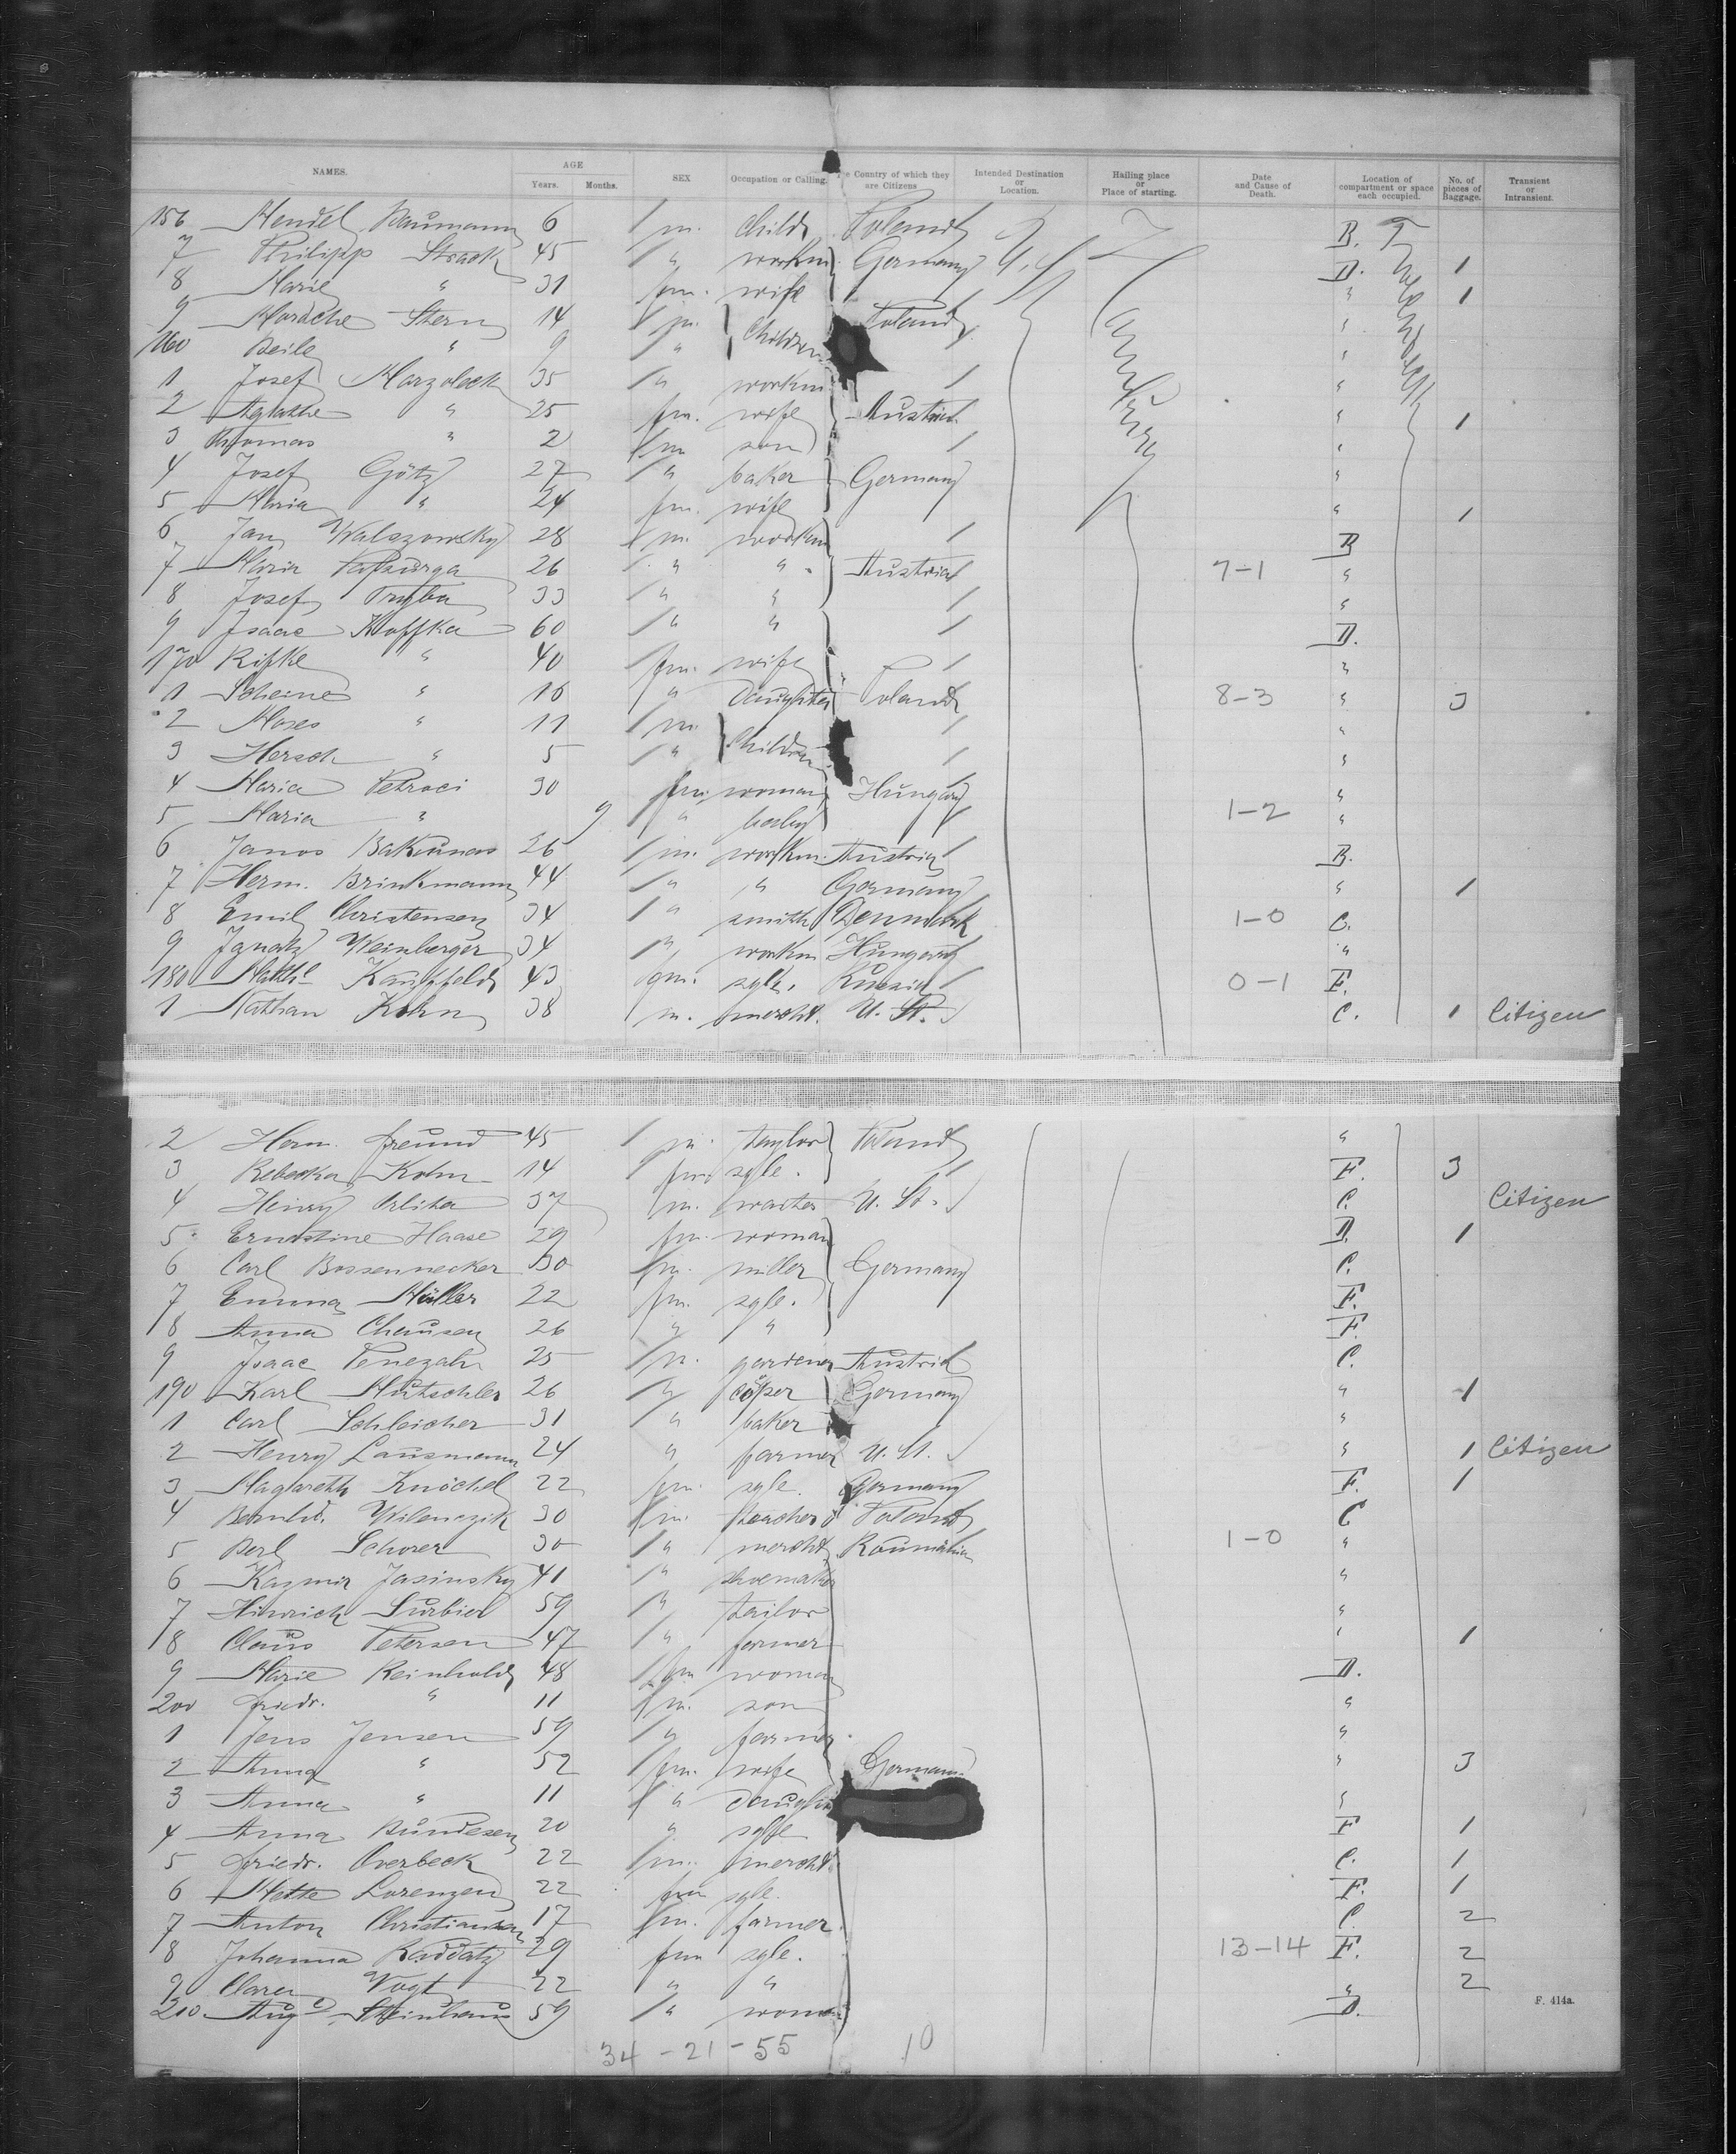 NAMES. AGE Years. Months. SEX Occupation or Calling. The Country of which they are Citizens Intended Destination or Location. Hailing place or Place of starting. Date and Cause of Death. Location of compartment or space each occupied. No. of pieces of Baggage. Transient or Intransient.
156 Mendel Baumann 6 m. child Poland B.
7 Philipp Strack 45 " workm Germany D. 1
8 Marie " 31 fm. wife " 1
9 Mordche Stern 14 m. Children Poland "
160 Beile " 9 " "
1 Josef Marzoleck 35 " workm "
2 Agathe " 25 fm. wife Austria " 1
3 Thomas " 2 m son "
4 Josef Götz 27 " baker Germany "
5 Maria " 24 fm. wife " 1
6 Jan Walszowsky 28 m. workm B
7 Maria 26 " " Austria 7-1 "
8 Josef Tryba 33 " " "
9 Isaac Koffka 60 " " D.
170 Rifke " 40 fm. wife "
1 Scheine " 16 " Daughter Poland 8-3 " 3
2 Moses " 11 m. Children "
3 Hersch " 5 " "
4 Maria Petraci 30 fm. woman Hungary "
5 Maria " 9 " baby 1-2 "
6 Janos Bakunas 26 m. workm. Austria B.
7 Herm. Brinkmann 44 " " Germany " 1
8 Emil Christensen 34 " smith Denmark 1-0 C.
9 Ignatz Weinberger 34 " workm Hungary "
180 Kauffeld 43 fm. sgle. Russia 0-1 F.
1 Nathan Kohn 38 m. mercht. U. St. C. 1 Citizen
2 Herm. Freund 45 m. taylor Poland "
3 Rebecka Kohn 14 fm sgle. F. 3
4 Henry 37 m. U. St. C. Citizen
5 Ernestine Haase 29 fm. woman D. 1
6 Carl Bossennecker 30 m. miller Germany C.
7 Emma Müller 22 fm. sgle. F.
8 Anna Clausen 26 " " F.
9 Isaac 25 m. gardener Austria C.
190 Karl Mutschler 26 " Germany " 1
1 Carl Schleicher 31 " baker "
2 Henry Lausmann 24 " farmer U. St. " 1 Citizen
3 Magareth Knöchel 22 fm. sgle. Germany F. 1
4 Bernhd. Wilenczik 30 m. teacher Poland C
5 Berl Schorer 30 " mercht. Roumania 1-0 "
6 Kazmir Jasinsky 41 " shoemaker "
7 Hinrich Surbier 59 " tailor "
8 Claus Petersen 47 " farmer " 1
9 Marie Reinhold 48 fm woman D.
200 Friedr. " 11 m. son "
1 Jens Jensen 59 " farmer "
2 Anna " 52 fm. wife Germany " 3
3 Anna " 11 " daughter "
4 Anna Bundesen 20 " sgle F 1
5 Friedr. Overbeck 22 m. mercht. C. 1
6 Mette Lorenzen 22 fm sgle. F. 1
7 Anton Christiansen 17 m. farmer C. 2
8 Johanna Raddatz 29 fm sgle. 13-14 F. 2
9 Clara Vogt 22 " " " 2
210 Steinhaus 59 " woman D.
F. 414a.
34 - 21 - 55 10